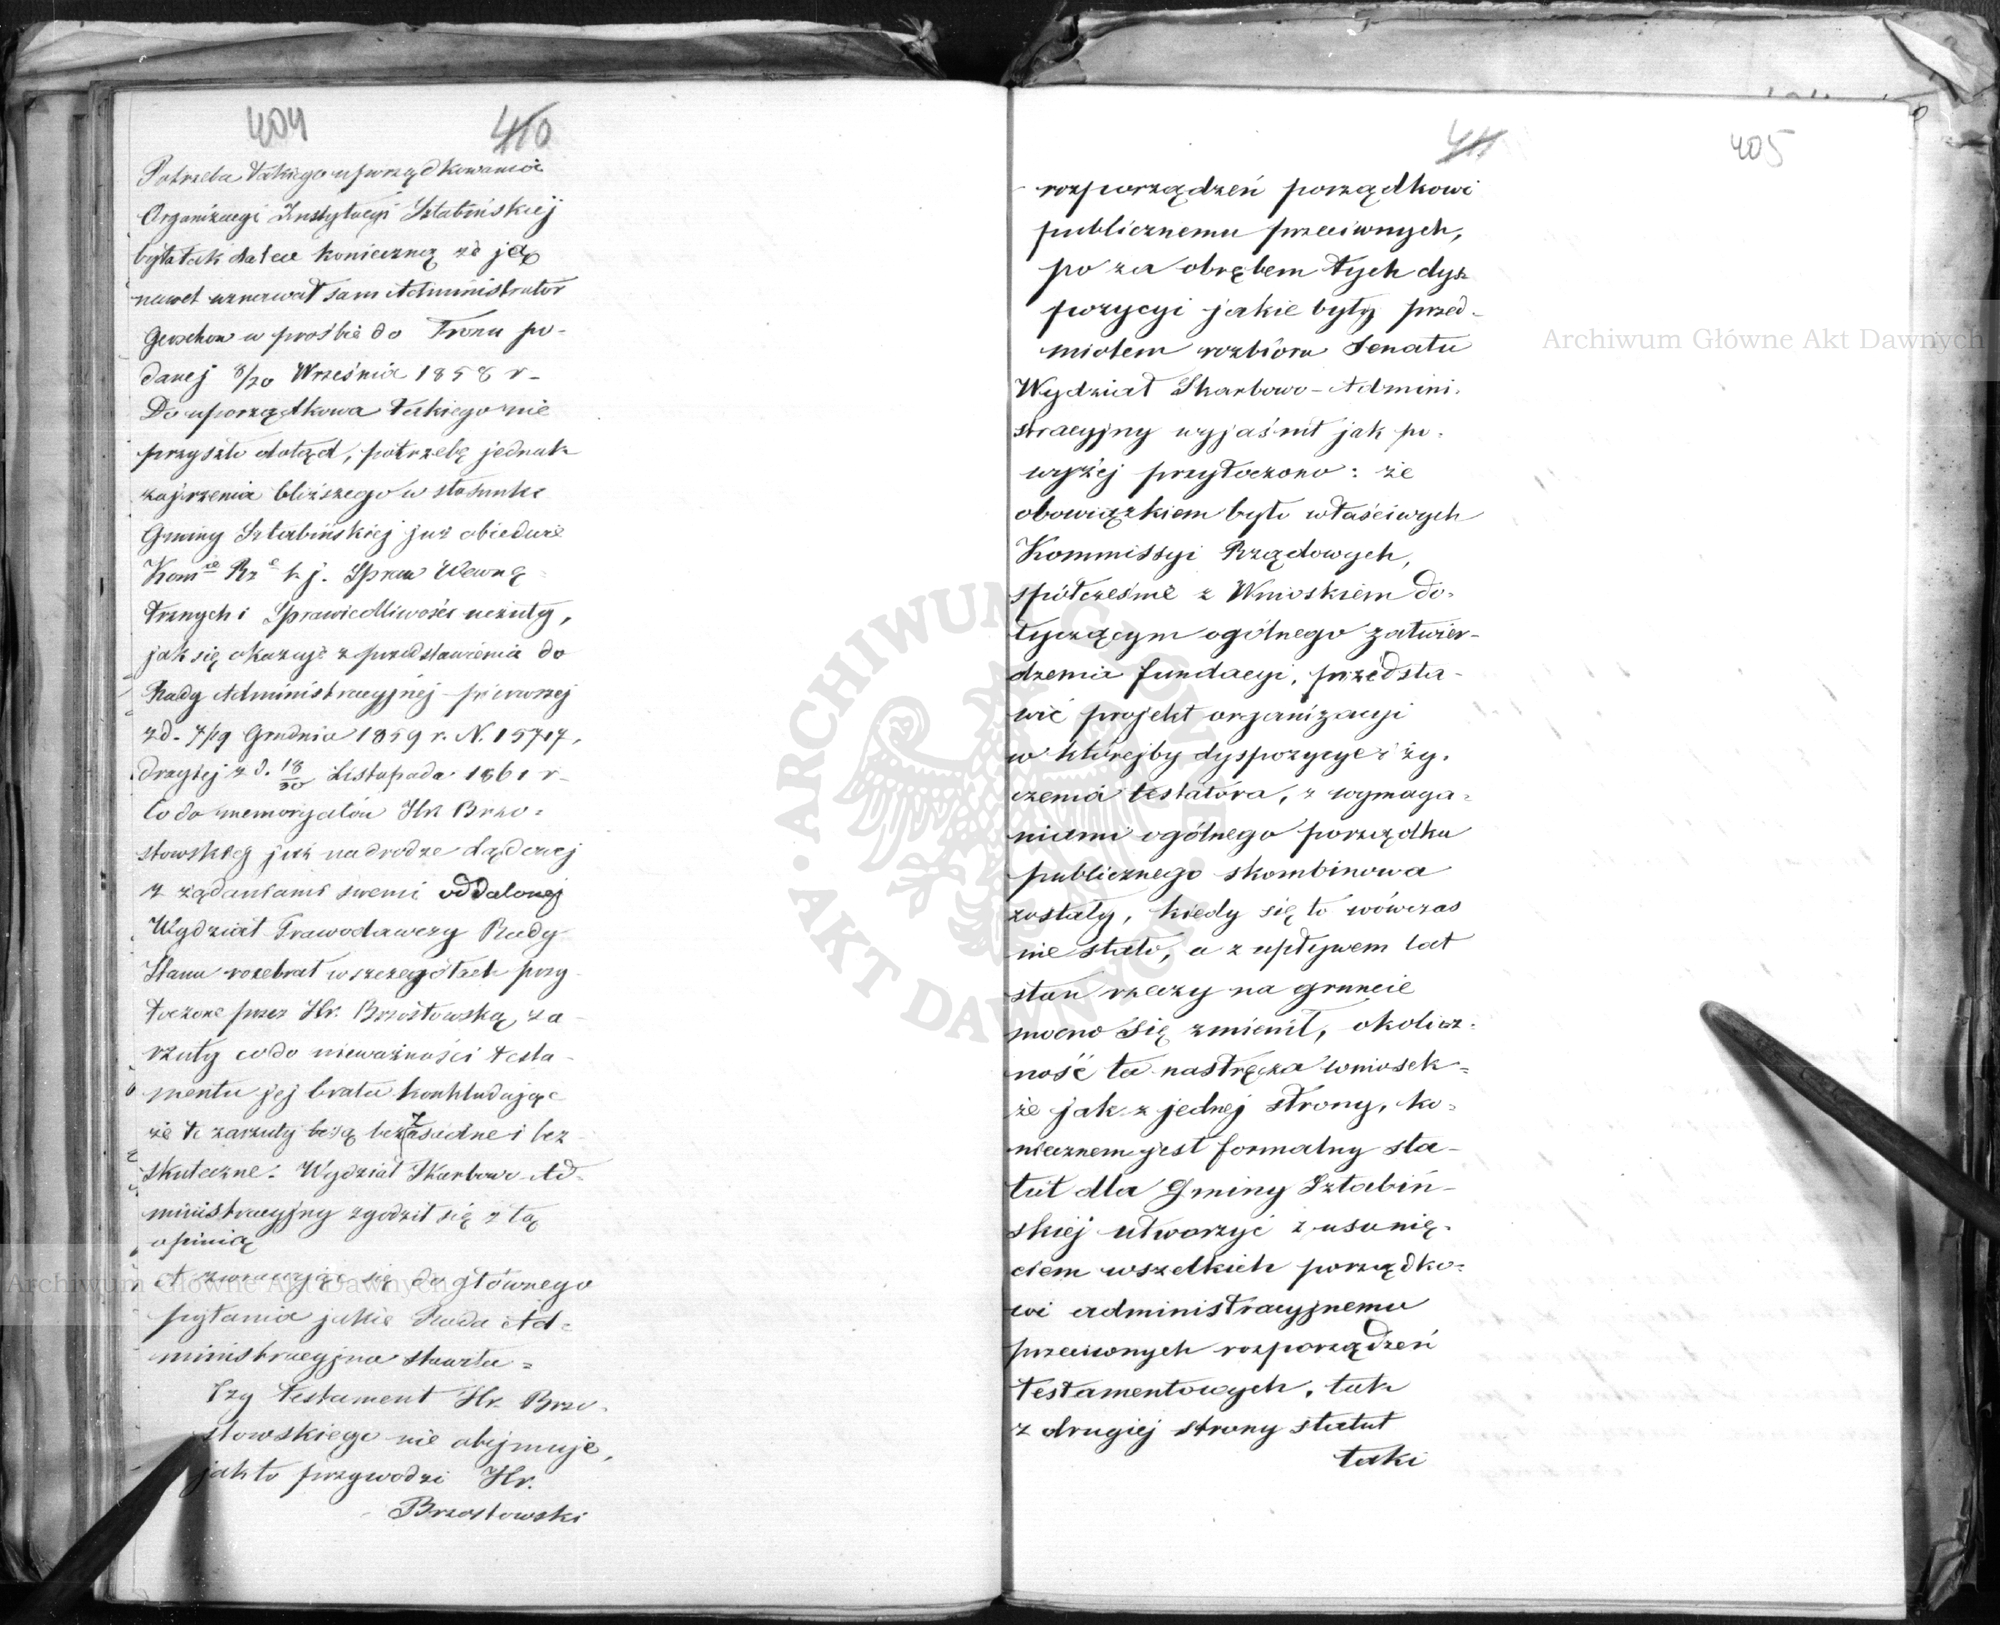 404 410
Potrzeba takiego uporządkowania
Organizacyi Instytucyi Sztabińskiej
była tak dalece konieczną że ją
nawet uznawał sam Administrator
Gerschow w prośbie do Tronu po-
danej 8/20 Września 1858 r-
Do uporządkowa takiego nie
przyszło dotąd, potrzebę jednak
zajrzenia bliższego w stosunki
Gminy Sztabińskiej już obiedwie
Kom Rz t. j. Spraw Wewnę
trznych i Sprawiedliwości uczuły,
jak się okazuje z przedstawienia do
Rady Administracyjnej pierwszej
z d. 7/19 Grudnia 1859 r. N. 15717,
drugiej z d. 18/30 Listopada 1861 r-
Co do memoryałów Hr. Brzo-
stowskiej już na drodze sądowej
z żądaniami swemi oddalonej
Wydział Prawodawczy Rady
Stanu rozebrał w szczegółach przy-
toczone przez Hr. Brzostowską za-
rzuty co do nieważności testa-
mentu jej brata konkludując
że te zarzuty są bezzasadne i bez-
skuteczne. Wydział Skarbowo-Ad-
ministracyjny zgodził się z tą
opinią
A zwracając się do głównego
pytania jakie Rada Ad-
ministracyjna stawiła =
Czy testament Hr. Brzo-
stowskiego nie obejmuje,
jak to przywodzi Hr.
Brzostowski
411 405
rozporządzeń porządkowi
publicznemu przeciwnych,
po za obrębem tych dys
pozycyi jakie były przed-
miotem rozbioru Senatu
Wydział Skarbowo-Admini-
stracyjny wyjaśnił jak po-
wyżej przytoczono: że
obowiązkiem było właściwych
Kommissyi Rządowych,
spółcześnie z Wnioskiem do-
tyczącym ogólnego zatwier-
dzenia fundacyi, przedsta-
wić projekt organizacyi
w którejby dyspozycye i ży-
czenia testatora, z wymaga-
niami ogólnego porządku
publicznego skombinowa
zostały, kiedy się to wówczas
nie stało, a z upływem lat
stan rzeczy na gruncie
mocno się zmienił, okolicz-
ność ta nastręcza wniosek-
że jak z jednej strony, ko-
niecznem jest formalny sta-
tut dla Gminy Sztabiń-
skiej utworzyć z usunię-
ciem wszelkich porządko-
wi administracyjnemu
przeciwnych rozporządzeń
testamentowych, tak
z drugiej strony statut
taki
Archiwum Główne Akt Dawnych
Archiwum Główne Akt Dawnych
ARCHIWUM GŁÓWNE AKT DAWNYCH